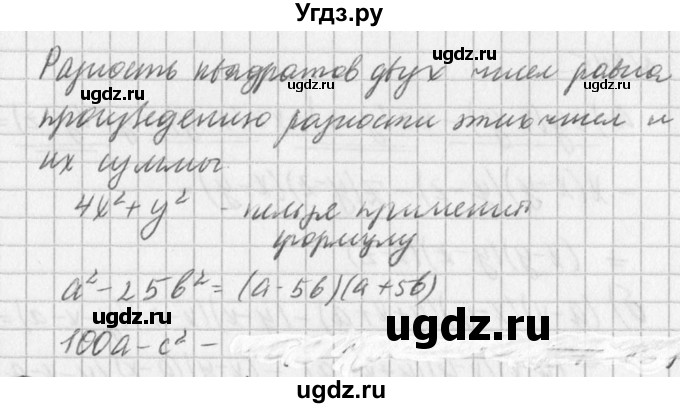 Угдз.ру
Разность квадратов двух чисел равна
ugdz.ru ugdz.ru
произведению разности этих чисел и
их суммы
ugdz.ru
4x² + y² - нельзя применить
формулу
ugdz.ru
a² - 25b² = (a - 5b)(a + 5b)
ugdz.ru ugdz.ru
100a - c² -
ugdz.ru